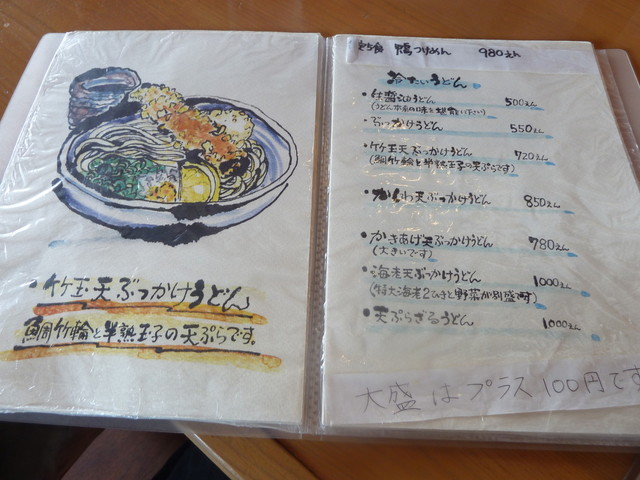 ・竹玉天ぶっかけうどん
鯛竹輪と半熟玉子の天ぷらです。
鴨つけめん 980えん
冷たいうどん
・生醤油うどん 500えん
(うどん本来の味を堪能下さい)
・ぶっかけうどん 550えん
・竹玉天ぶっかけうどん 720えん
(鯛竹輪と半熟玉子の天ぷらです)
・かしわ天ぶっかけうどん 850えん
・かきあげ天ぶっかけうどん 780えん
(大きいです)
・海老天ぶっかけうどん 1000えん
(特大海老2ひきと野菜が別盛で付)
・天ぷらざるうどん 1000えん
大盛はプラス100円です